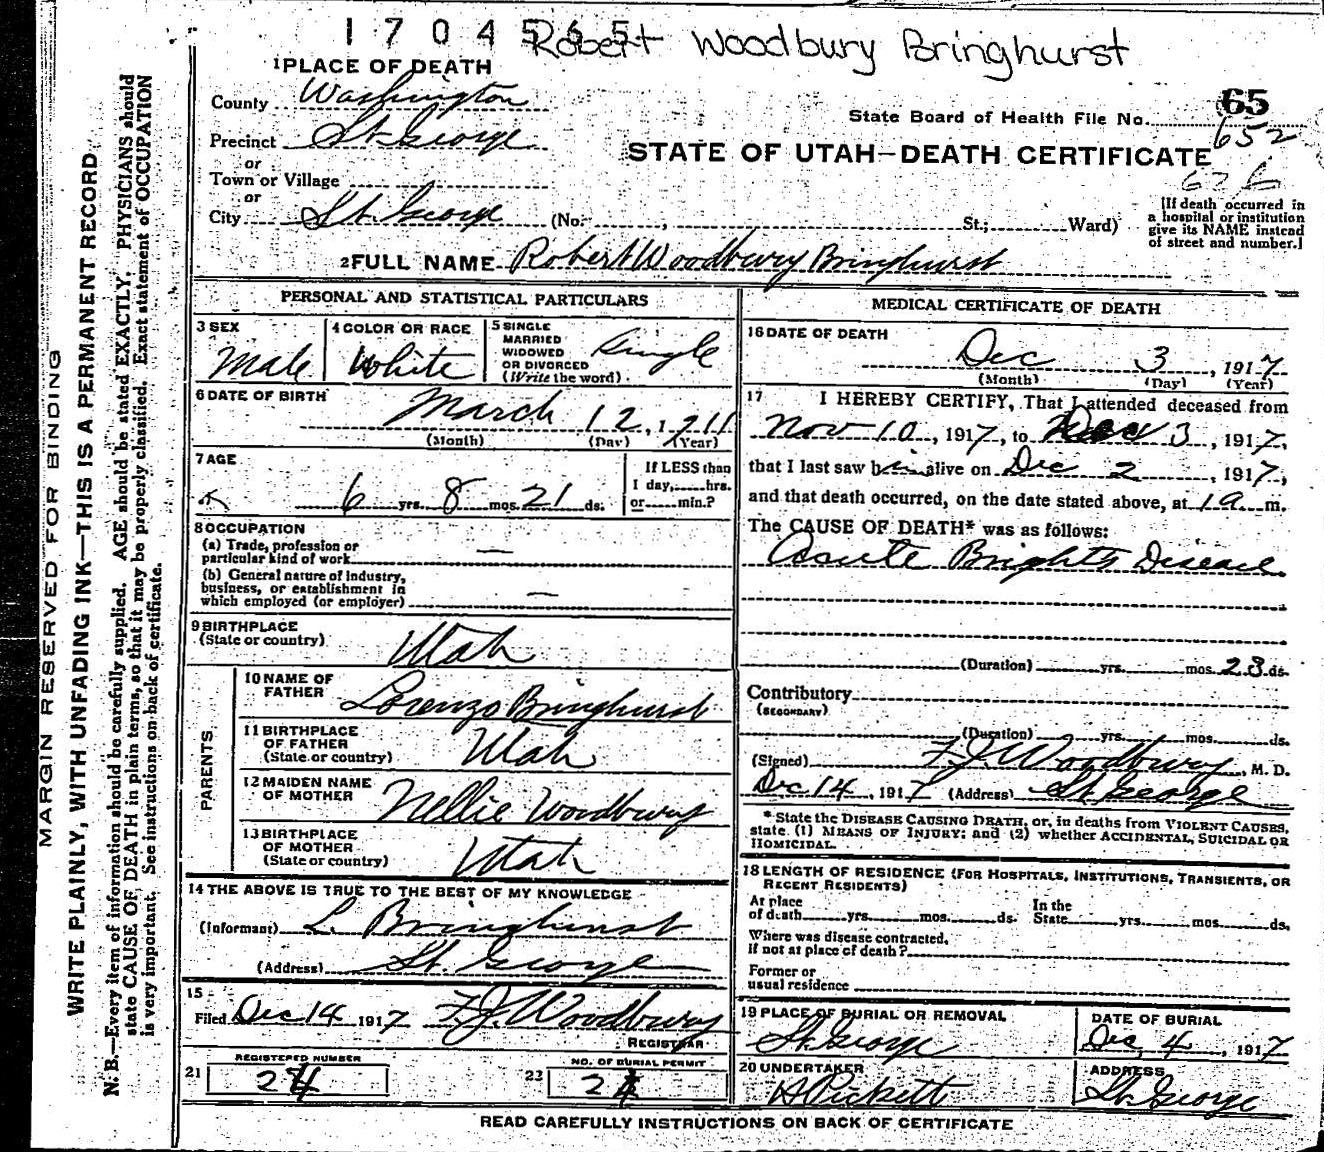 1704565
Robert Woodbury Bringhurst
1 PLACE OF DEATH
County Washington
Precinct St. George
or
Town or Village
or
City St. George (No. , St.; Ward)
State Board of Health File No. 65
652
STATE OF UTAH—DEATH CERTIFICATE
626
[If death occurred in
a hospital or institution
give its NAME instead
of street and number.]
2 FULL NAME Robert Woodbury Bringhurst
PERSONAL AND STATISTICAL PARTICULARS
3 SEX
Male
4 COLOR OR RACE
White
5 SINGLE
MARRIED
WIDOWED
OR DIVORCED
(Write the word)
Single
6 DATE OF BIRTH
March 12, 1911
(Month) (Day) (Year)
7 AGE
6 yrs. 8 mos. 21 ds.
If LESS than
1 day, hrs.
or min.?
8 OCCUPATION
(a) Trade, profession or
particular kind of work —
(b) General nature of industry,
business, or establishment in
which employed (or employer) —
9 BIRTHPLACE
(State or country) Utah
PARENTS
10 NAME OF
FATHER Lorenzo Bringhurst
11 BIRTHPLACE
OF FATHER
(State or country) Utah
12 MAIDEN NAME
OF MOTHER Nellie Woodbury
13 BIRTHPLACE
OF MOTHER
(State or country) Utah
14 THE ABOVE IS TRUE TO THE BEST OF MY KNOWLEDGE
(Informant) L. Bringhurst
(Address) St. George
15
Filed Dec 14, 1917 F.J. Woodbury
REGISTRAR
REGISTERED NUMBER
21 24
NO. OF BURIAL PERMIT
23 24
MEDICAL CERTIFICATE OF DEATH
16 DATE OF DEATH
Dec 3, 1917
(Month) (Day) (Year)
17 I HEREBY CERTIFY, That I attended deceased from
Nov 10, 1917, to Dec 3, 1917,
that I last saw him alive on Dec 2, 1917,
and that death occurred, on the date stated above, at 1 a m.
The CAUSE OF DEATH* was as follows:
Acute Brights Disease
(Duration) yrs. mos. 23 ds.
Contributory
(SECONDARY)
(Duration) yrs. mos. ds.
(Signed) F.J. Woodbury, M. D.
Dec 14, 1917 (Address) St. George
*State the DISEASE CAUSING DEATH, or, in deaths from VIOLENT CAUSES,
state (1) MEANS OF INJURY; and (2) whether ACCIDENTAL, SUICIDAL OR
HOMICIDAL.
18 LENGTH OF RESIDENCE (FOR HOSPITALS, INSTITUTIONS, TRANSIENTS, OR
RECENT RESIDENTS)
At place
of death yrs. mos. ds.
In the
State yrs. mos. ds.
Where was disease contracted,
if not at place of death?
Former or
usual residence
19 PLACE OF BURIAL OR REMOVAL
St. George
DATE OF BURIAL
Dec. 4, 1917
20 UNDERTAKER
A Pickett
ADDRESS
St. George
READ CAREFULLY INSTRUCTIONS ON BACK OF CERTIFICATE
MARGIN RESERVED FOR BINDING
WRITE PLAINLY, WITH UNFADING INK—THIS IS A PERMANENT RECORD
N. B.—Every item of information should be carefully supplied. AGE should be stated EXACTLY. PHYSICIANS should
state CAUSE OF DEATH in plain terms, so that it may be properly classified. Exact statement of OCCUPATION
is very important. See instructions on back of certificate.